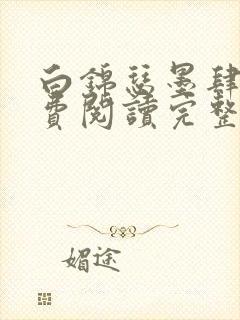 白錦瑟墨肆
費閱讀完整
媚途